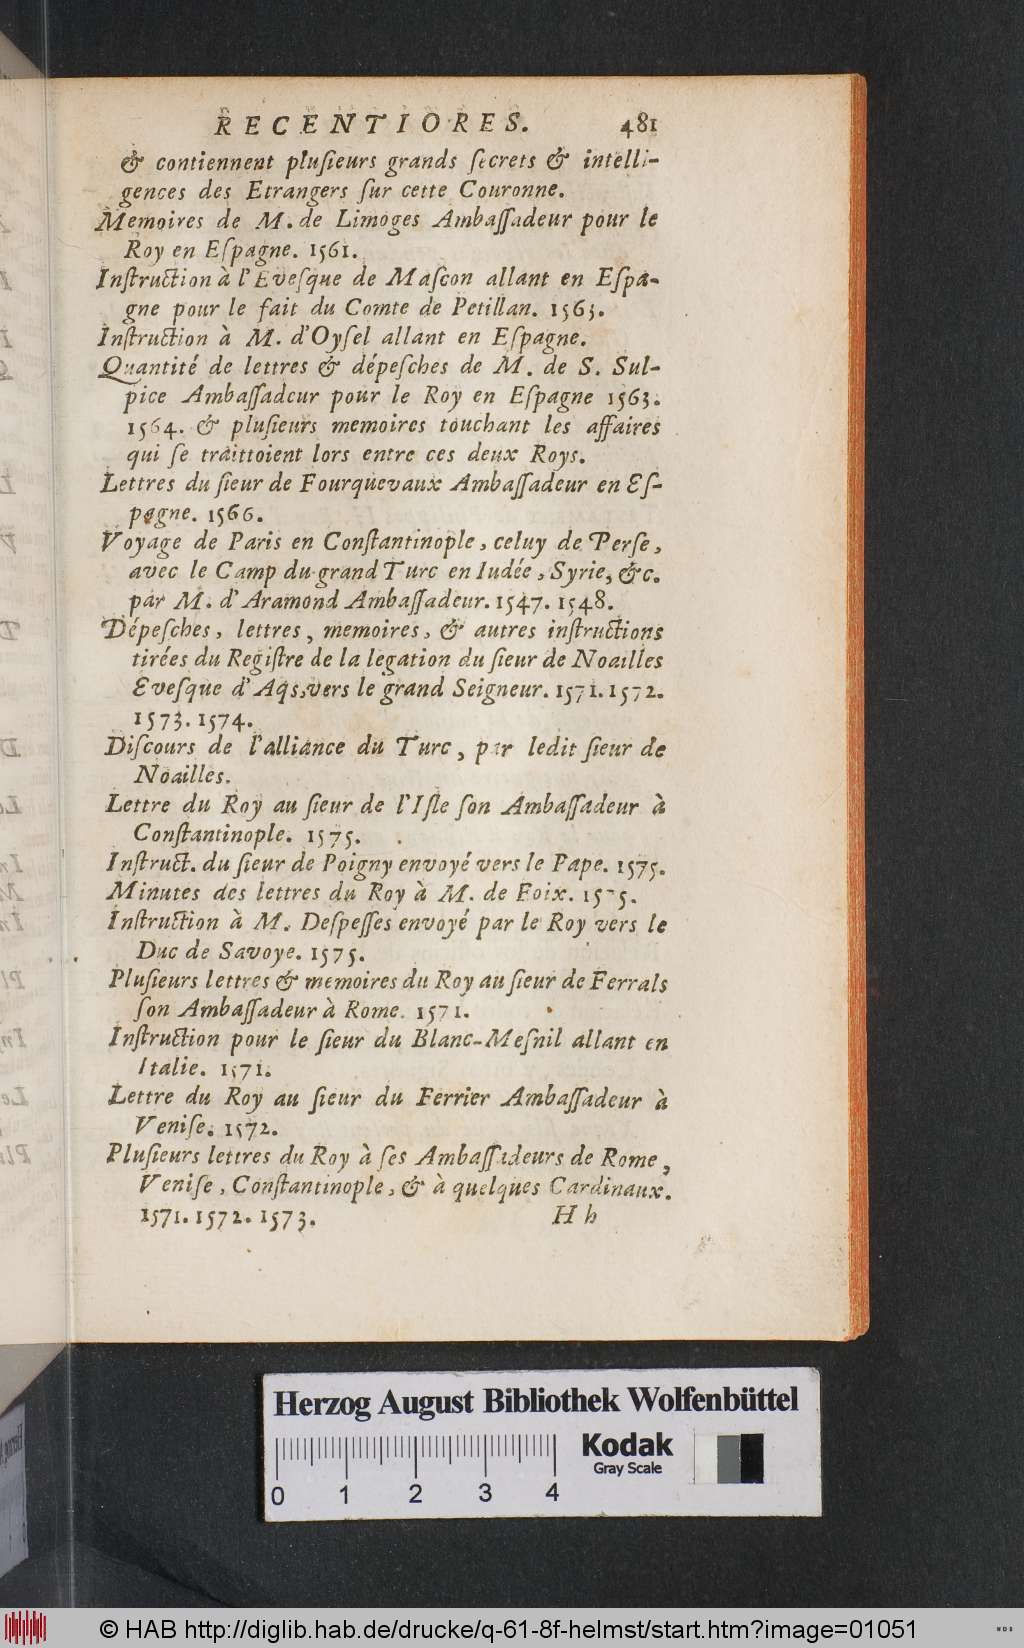 RECENTIORES. 481
& contiennent pluſieurs grands ſecrets & intelli-
gences des Etrangers ſur cette Couronne.
Memoires de M. de Limoges Ambaſſadeur pour le
Roy en Eſpagne. 1561.
Inſtruction à l'Eveſque de Maſcon allant en Eſpa-
gne pour le fait du Comte de Petillan. 1563.
Inſtruction à M. d'Oyſel allant en Eſpagne.
Quantité de lettres & dépeſches de M. de S. Sul-
pice Ambaſſadeur pour le Roy en Eſpagne 1563.
1564. & pluſieurs memoires touchant les affaires
qui ſe traittoient lors entre ces deux Roys.
Lettres du ſieur de Fourquevaux Ambaſſadeur en Eſ-
pagne. 1566.
Voyage de Paris en Conſtantinople, celuy de Perſe,
avec le Camp du grand Turc en Iudée, Syrie, &c.
par M. d'Aramond Ambaſſadeur. 1547. 1548.
Dépeſches, lettres, memoires, & autres inſtructions
tirées du Regiſtre de la legation du ſieur de Noailles
Eveſque d'Aqs, vers le grand Seigneur. 1571. 1572.
1573. 1574.
Diſcours de l'alliance du Turc, par ledit ſieur de
Noailles.
Lettre du Roy au ſieur de l'Iſle ſon Ambaſſadeur à
Conſtantinople. 1575.
Inſtruct. du ſieur de Poigny envoyé vers le Pape. 1575.
Minutes des lettres du Roy à M. de Foix. 1575.
Inſtruction à M. Deſpeſſes envoyé par le Roy vers le
Duc de Savoye. 1575.
Pluſieurs lettres & memoires du Roy au ſieur de Ferrals
ſon Ambaſſadeur à Rome. 1571.
Inſtruction pour le ſieur du Blanc-Meſnil allant en
Italie. 1571.
Lettre du Roy au ſieur du Ferrier Ambaſſadeur à
Veniſe. 1572.
Pluſieurs lettres du Roy à ſes Ambaſſadeurs de Rome,
Veniſe, Conſtantinople, & à quelques Cardinaux.
1571. 1572. 1573. H h
Herzog August Bibliothek Wolfenbüttel
Kodak
Gray Scale
0 1 2 3 4
© HAB http://diglib.hab.de/drucke/q-61-8f-helmst/start.htm?image=01051